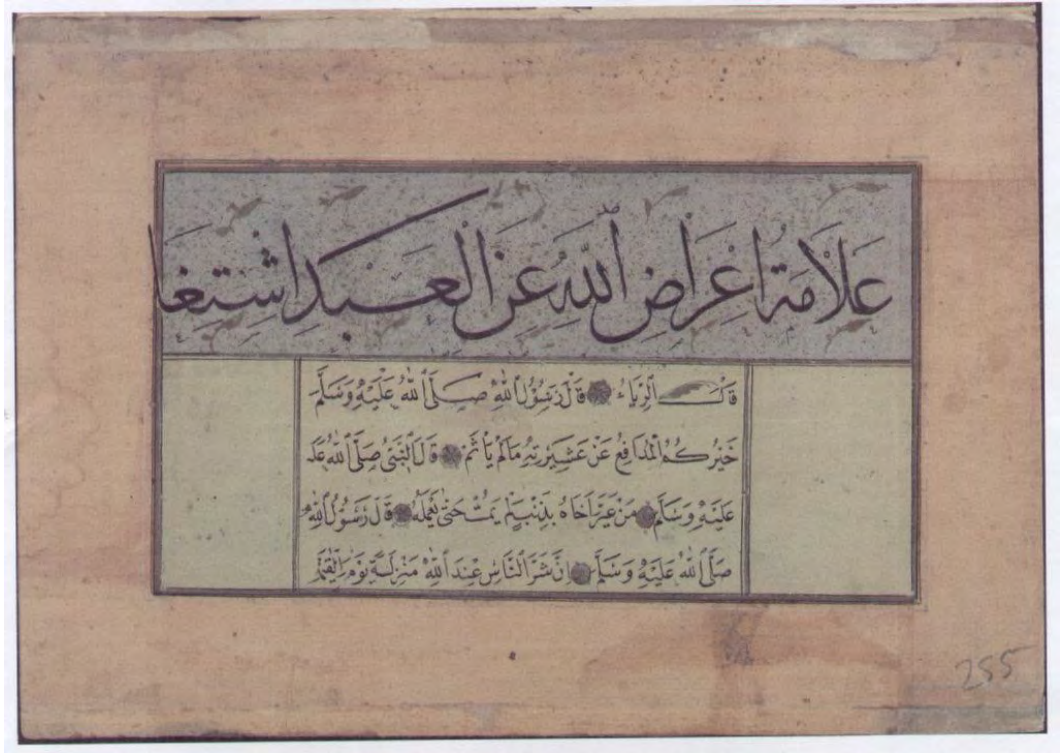 عَلَامَةُ اِعْرَاضِ ٱللّٰهِ عَنِ الْعَبْدِ اشْتِغَا
قَالَ ٱلرِّيَاءُ قَالَ رَسُوْلُ ٱللّٰهِ صَلَّى ٱللّٰهُ عَلَيْهِ وَسَلَّمَ
خَيْرُكُمُ الْمُدَافِعُ عَنْ عَشِيْرَتِهِ مَالَمْ يَأْثَمْ قَالَ ٱلنَّبِىُّ صَلَّى ٱللّٰهُ عَلَ
عَلَيْهِ وَسَلَّمَ مَنْ عَيَّرَ اَخَاهُ بِذَنْبٍ لَمْ يَمُتْ حَتّٰى يَعْمَلَهُ قَالَ رَسُوْلُ ٱللّٰهِ
صَلَّى ٱللّٰهُ عَلَيْهِ وَسَلَّمَ اِنَّ شَرَّ النَّاسِ عِنْدَ ٱللّٰهِ مَنْزِلَةً يَوْمَ ٱلْقِيٰمَ
255